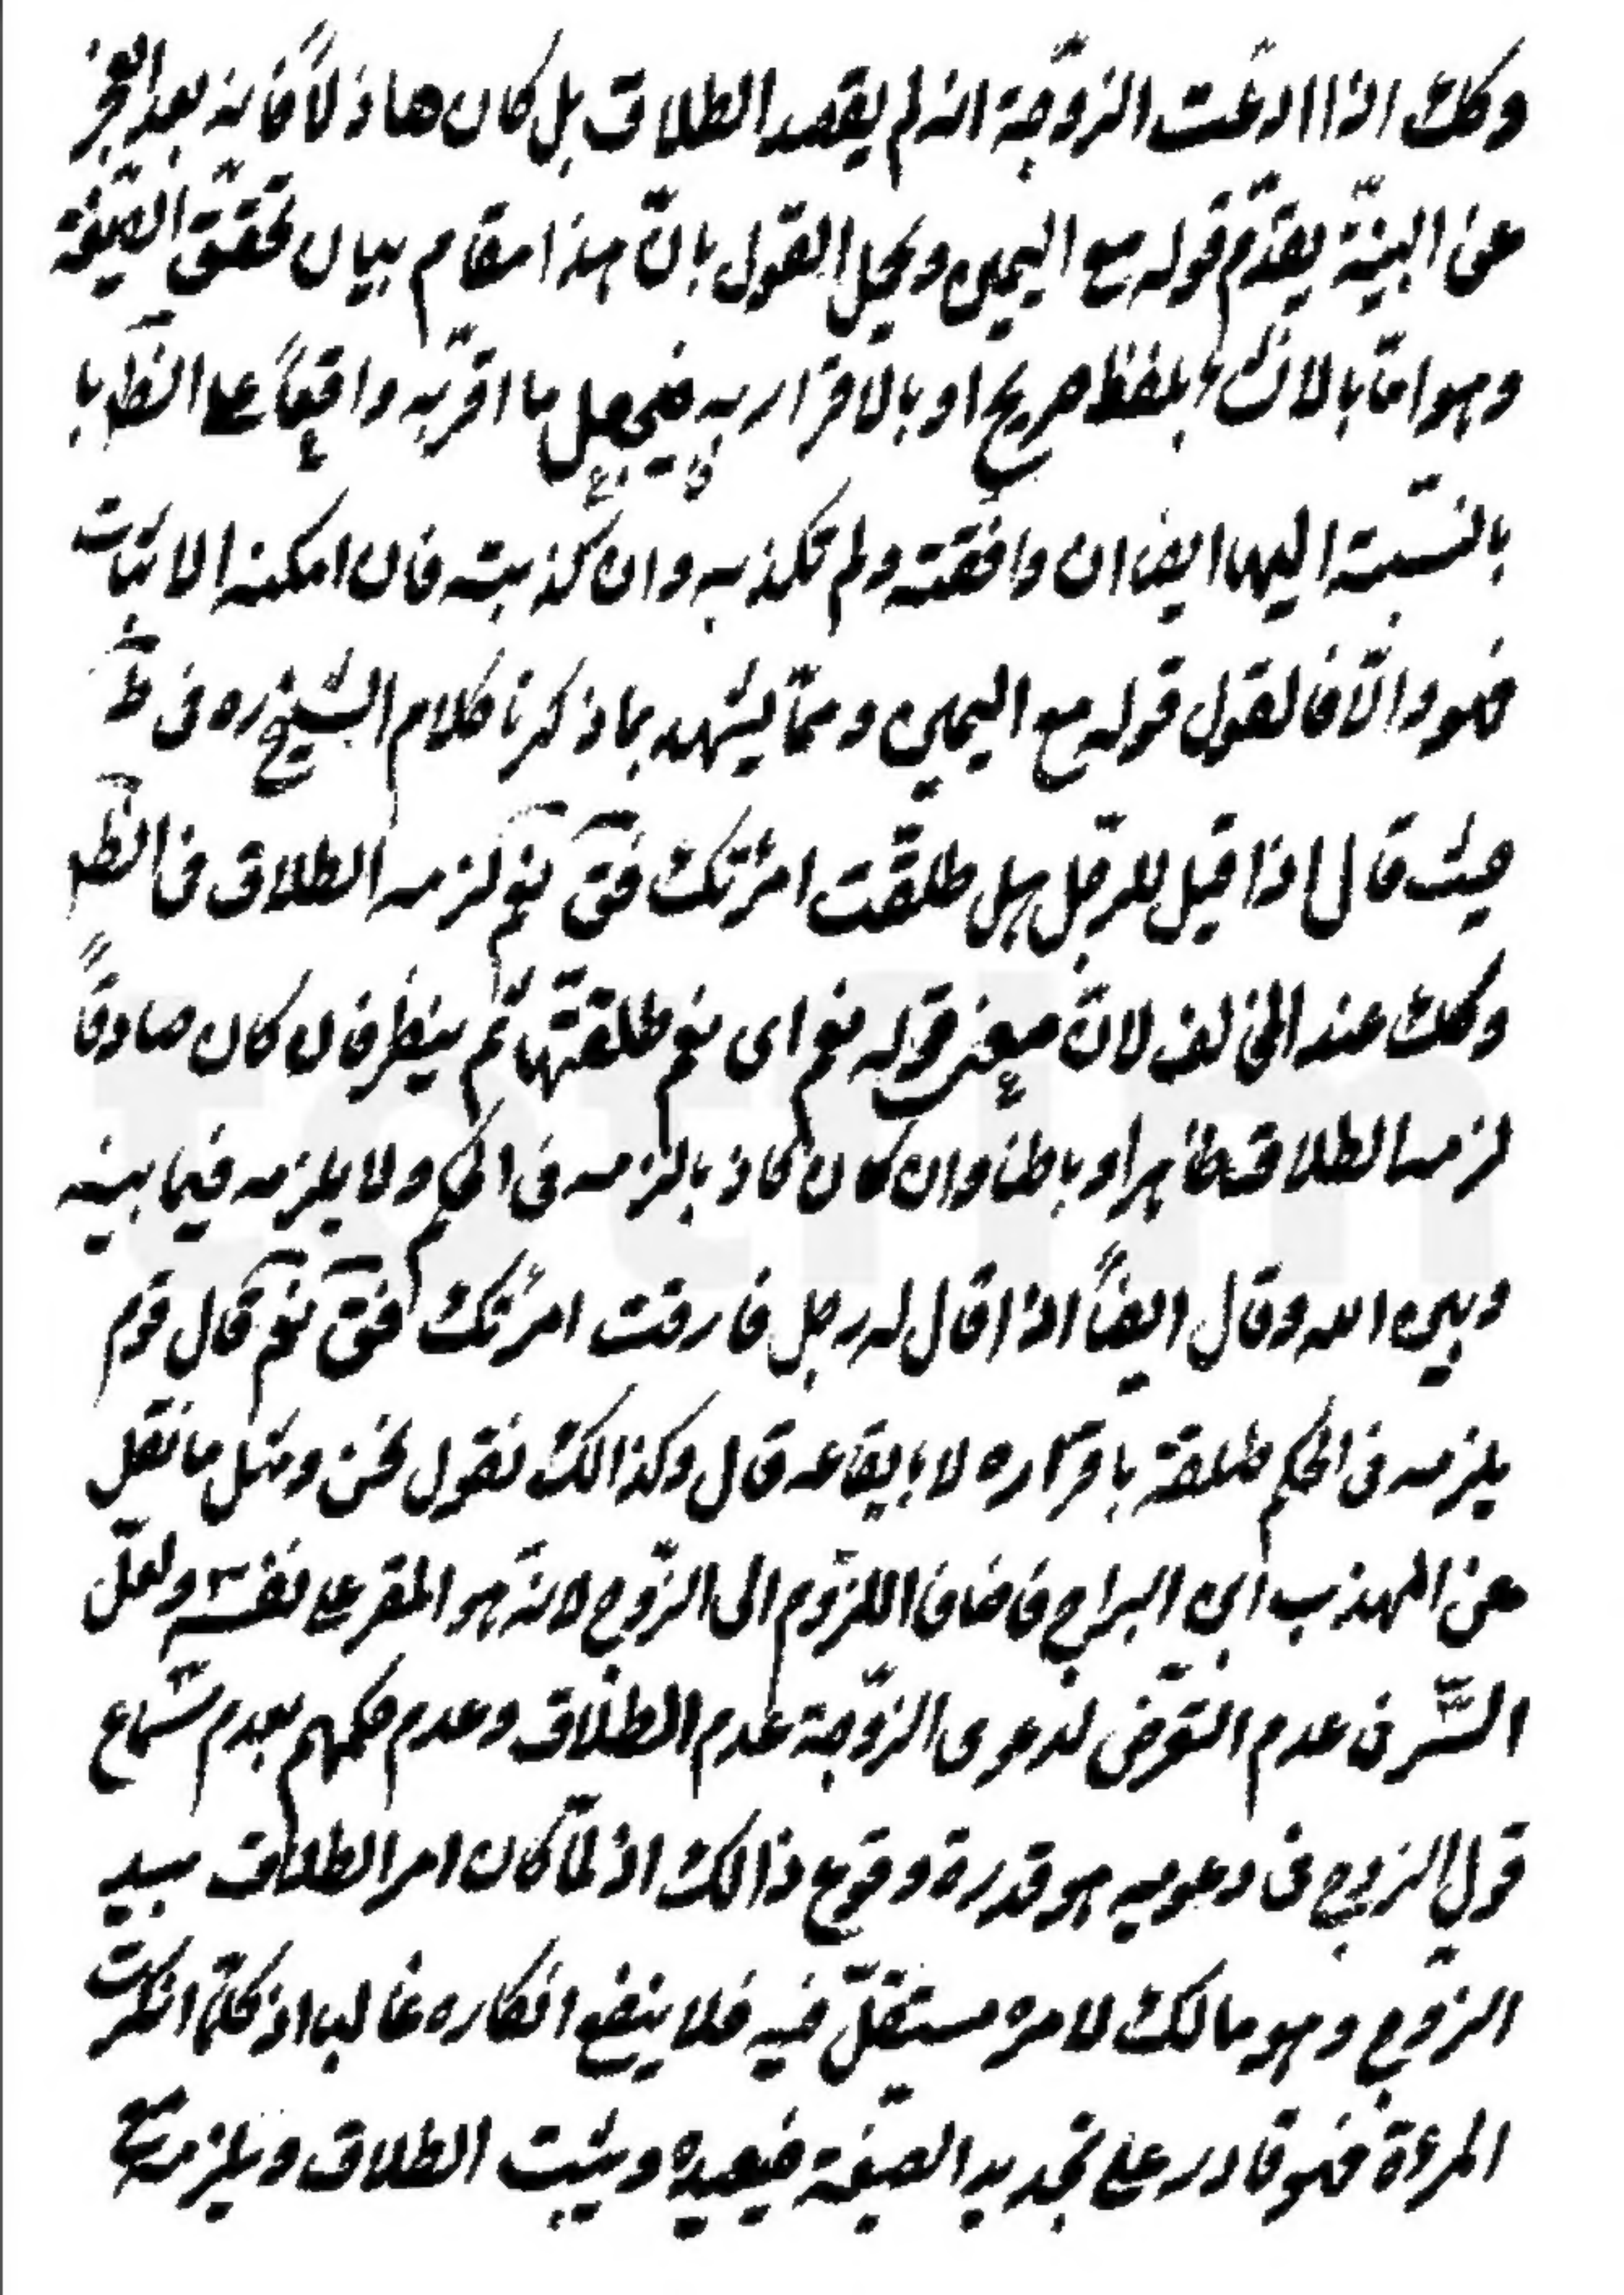 وكك اذا ادعّت الزّوجة انه لم يقصد الطلاق بل كان هاذلاً فانه بعد العجز
عن البينّة يقدّم قوله مع اليمين ويحل القول بانّ هذا مقام بيان تحقّق الصّيغة
وهو امّا بالانشاء بلفظ صريح او بالاقرار به فيجعل ما اقرّ به واقعاً على الظّ با
بالنسّبة اليها ايضا ان وافقته ولم تكذبه وان كذبته فان امكنه الاثبات
فهو والّا فالقول قوله مع اليمين وممّا يشهد بما ذكرنا كلام الشيخ ره فى ط
حيث قال اذا قيل للرّجل هل طلقّت امرئتك فقَ نعم لزمه الطلاق فى الظ
وكك عند المخالف لانّ معنى قوله نعم اى نعم طلقتّها ثمّ ينظر فان كان صادقاً
لزمه الطلاق ظاهرا وباطنا وان كان كاذبا لزمه فى الحكم ولا يلزمه فيما بينه
وبين الله وقال ايضاً اذا قال له رجل فارقت امرئتك فقَ نعم قال قوم
يلزمه فى الحكم طلقة باقراره لا بايقاعه قال وكذالك نقول نحن ومثل ما نقل
عن المهذب ابن البراج فاضاف اللزّوم الى الزّوج لانّه هو المقر على نفسه ولعلّ
السّّر فى عدم التعّرض لدعوى الزّوجة عدم الطلاق وعدم حكمهم بعدم سماع
قول الزوج فى دعويه هو قدرة وقوع ذالك اذ لمّا كان امر الطلاق بيد
الزّوج وهو مالك لامره مستقلّ فيه فلا ينفع انكاره غالبا اذ كلمّا انكرت
المرءة فهو قادر على تجديد الصّيغة فيعيده ويثبت الطلاق ويلزمه